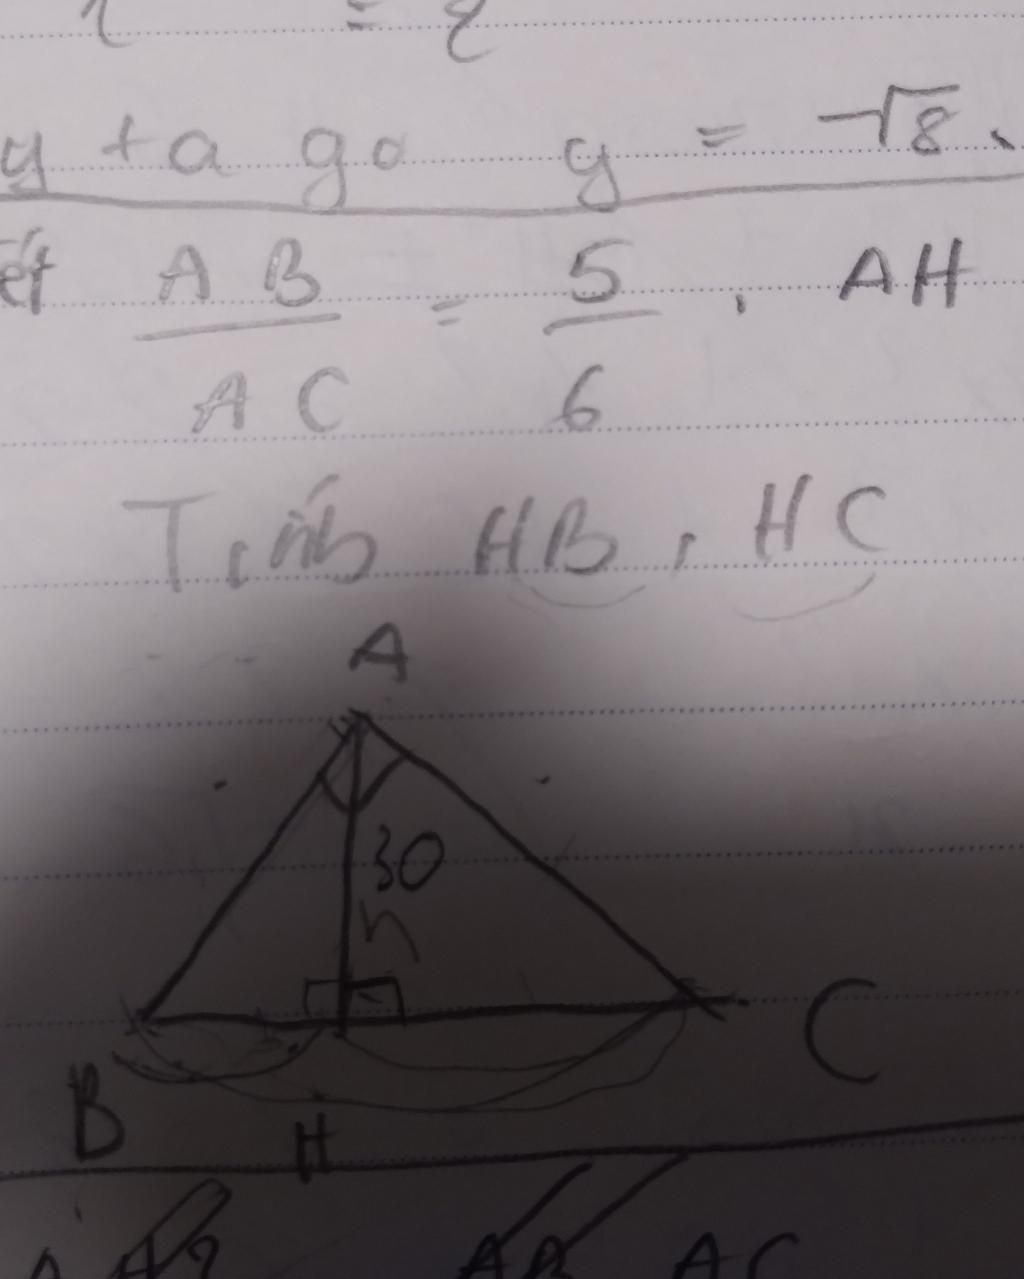 y + a go y = √8.
AB/AC = 5/6, AH
Tính HB, HC
A
30
h
B
H
C
AB AC